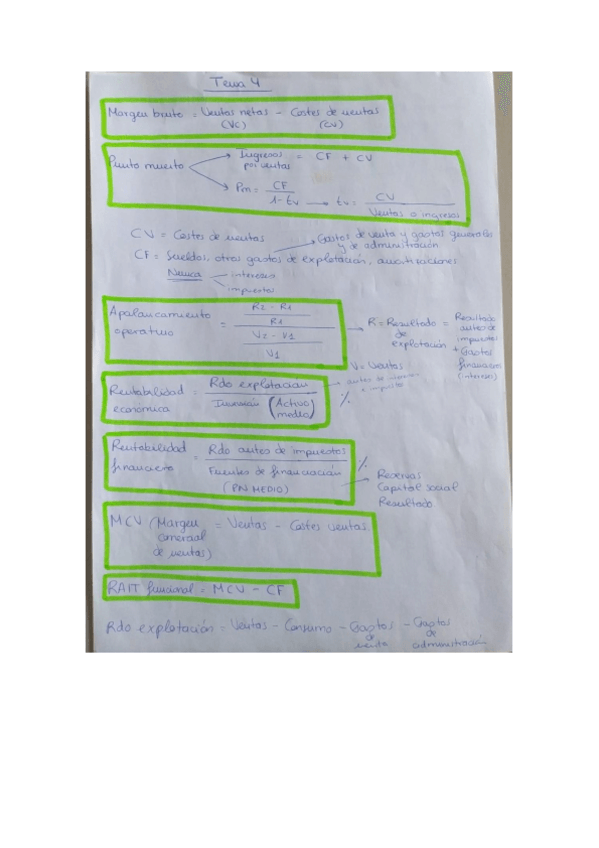 Tema 4
Margen bruto = Ventas netas - Costes de ventas
(VC) (CV)
Punto muerto
Ingresos = CF + CV
por ventas
Pm = CF / 1 - tv → tv = CV / Ventas o ingresos
CV = Costes de ventas
Gastos de venta y gastos generales
y de administración
CF = Sueldos, otros gastos de explotación, amortizaciones
Nunca
intereses
impuestos
Apalancamiento operativo =
R2 - R1
R1
V2 - V1
V1
R = Resultado de explotación = Resultado antes de impuestos + Gastos financieros (intereses)
V = Ventas
Rentabilidad económica = Rdo explotación / Inversión (Activo medio) %
antes de intereses
e impuestos
Rentabilidad financiera = Rdo antes de impuestos / Fuentes de financiación %
(PN MEDIO)
Reservas
Capital social
Resultado
MCV (Margen comercial de ventas) = Ventas - Costes ventas.
RAIT funcional = MCV - CF
Rdo explotación = Ventas - Consumo - Gastos de venta - Gastos de administración